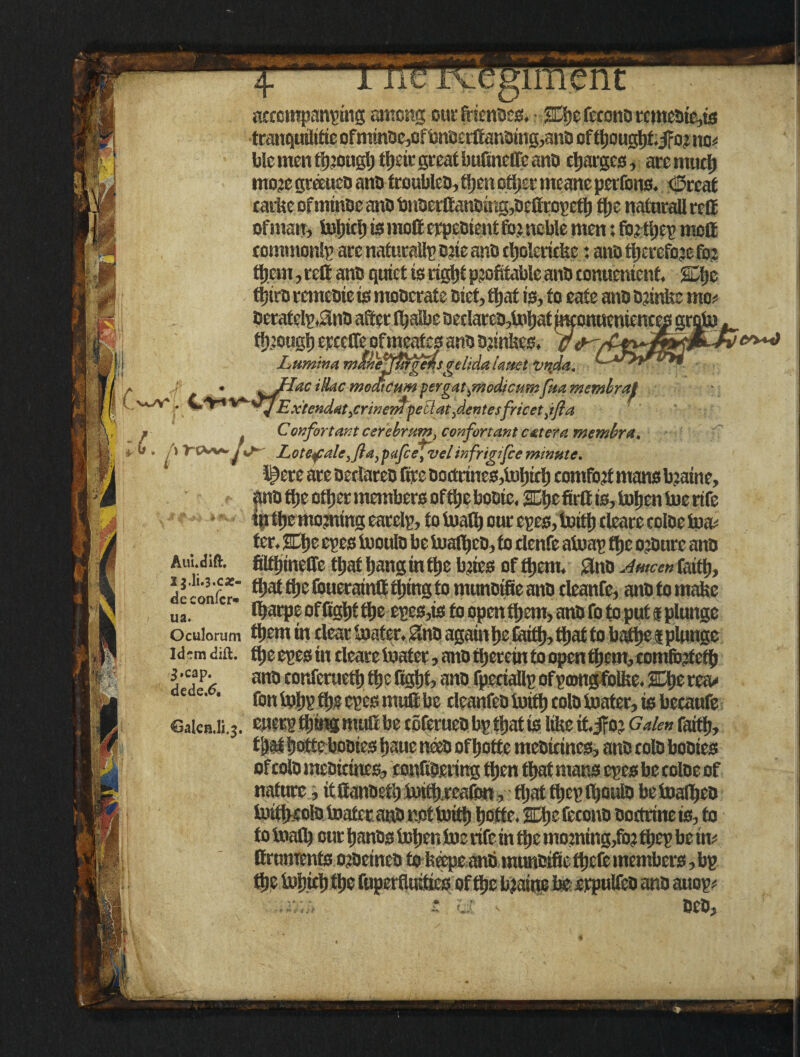 4 The Regiment
accompanying among our friendes. The second remedie, is
tranquilitie of minde, of vnderstanding, and of thought. For no-
ble men through their great businesse and charges, are much
more gréeued and troubled, then other meane persons. Great
carke of minde and vnderstanding, destroyeth the naturall rest
of man, which is most expedient for noble men: for they most
commonly are naturally drie and cholericke: and therefore for
them, rest and quiet is right profitable and conuenient. The
third remedie is moderate diet, that is, to eate and drinke mo-
derately. And after shalbe declared, what inconueniences grow
through excesse of meates and drinkes.
Lumina mane surgens gelida lauet vnda.
Hac illac modicum pergat, modicum sua membra
Extendat, crinem pectat, dentes fricet, ista
Confortant cerebrum, confortant cætera membra.
Lote, cale, sta, pasce, vel infrigisce minute.
Here are declared sixe doctrines, which comfort mans braine,
and the other members of the bodie. The first is, when we rise
in the morning earely, to wash our eyes, with cleare colde wa-
ter. The eyes would be washed, to clense away the ordure and
Aui. dist. filthinesse that hang in the bries of them. And Auicen saith,
13.li.3.cæ- that the souerainst thing to mundifie and cleanse, and to make
de conser- sharpe of sight the eyes, is to open them, and so to put & plunge
ua.
Oculorum them in clear water. And again he saith, that to bathe & plunge
Idem dist. the eyes in cleare water, and therein to open them, comforteth
3.cap. and conserueth the sight, and specially of yoong folke. The rea-
dede.6. son why the eyes must be cleansed with cold water, is because
Galen.li.3. euery thing must be cõserued by that is like it. For Galen saith,
that hotte bodies haue néed of hotte medicines, and cold bodies
of cold medicines, considering then that mans eyes be colde of
nature, it standeth with reason, that they should be washed
with cold water and not with hotte. The second doctrine is, to
to wash our hands when we rise in the morning, for they be in-
struments ordeined to kéepe and mundifie these members, by
the which the superfluities of the braine be expulsed and auoy-
ded,